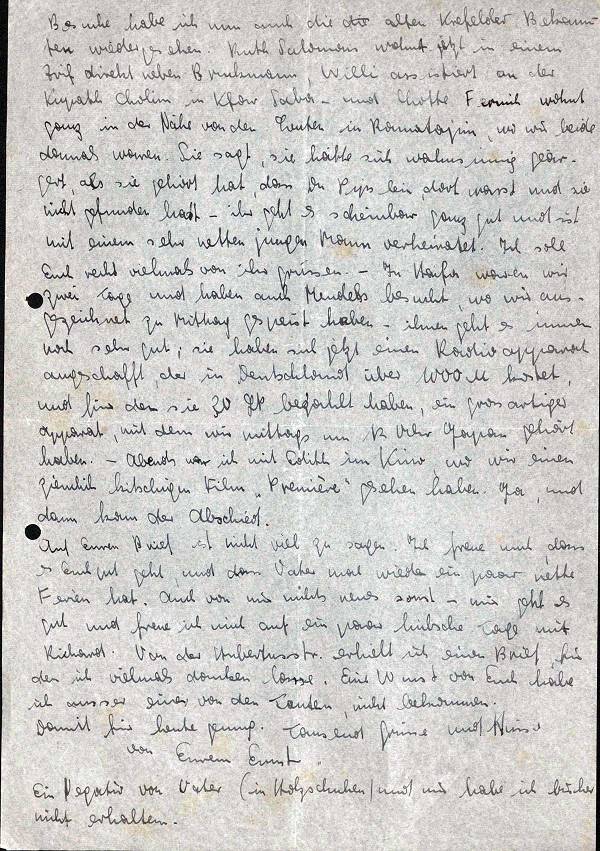 Besuche habe ich nun auch die alten Krefelder Bekann-
ten wiedergesehen. Ruth Salomons wohnt jetzt in einem
direkt neben Bruckmann, Willi assistiert an der
Kupath Cholim in Kfar Saba - und Lotte wohnt
ganz in der Nähe von den Leuten in Ramatajim, wo wir beide
damals waren. Sie sagt, sie hätte sich wahnsinnig geär-
gert, als sie gehört hat, dass Du dort warst und sie
nicht gefunden hast - ihr geht es scheinbar ganz gut und ist
mit einem sehr netten jungen Mann verheiratet. Ich soll
Euch recht vielmals von ihr grüssen. - In Haifa waren wir
zwei Tage und haben auch Mendels besucht, wo wir aus-
gezeichnet zu Mittag gespeist haben - ihnen geht es immer
noch sehr gut, sie haben sich jetzt einen Radioapparat
angeschafft, der in Deutschland über 1000 M kostet,
und für den sie 30 £P bezahlt haben, ein grosartiger
apparat, mit dem wir mittags um 12 Uhr Japan gehört
haben. - Abends war ich mit Edith im Kino, wo wir einen
ziemlich kitschigen Film "Première" gesehen haben. Ja, und
dann kam der Abschied.
Auf Euren Brief ist nicht viel zu sagen. Ich freue mich, dass
es Euch gut geht, und dass Vater mal wieder ein paar nette
Ferien hat. Auch von mir nichts neues sonst - mir geht es
gut und freue ich mich auf ein paar hübsche Tage mit
Richard. Von der Hubertusstr. erhielt ich einen Brief, für
den ich vielmals danken lasse. Eine Wurst von Euch habe
ich ausser einer von den Tanten, nicht bekommen.
Damit für heute genug. Tausend Grüsse und Küsse
von Eurem Ernst.
Ein Negativ von Vater (in Holzschuhen) und mir habe ich bisher
nicht erhalten.